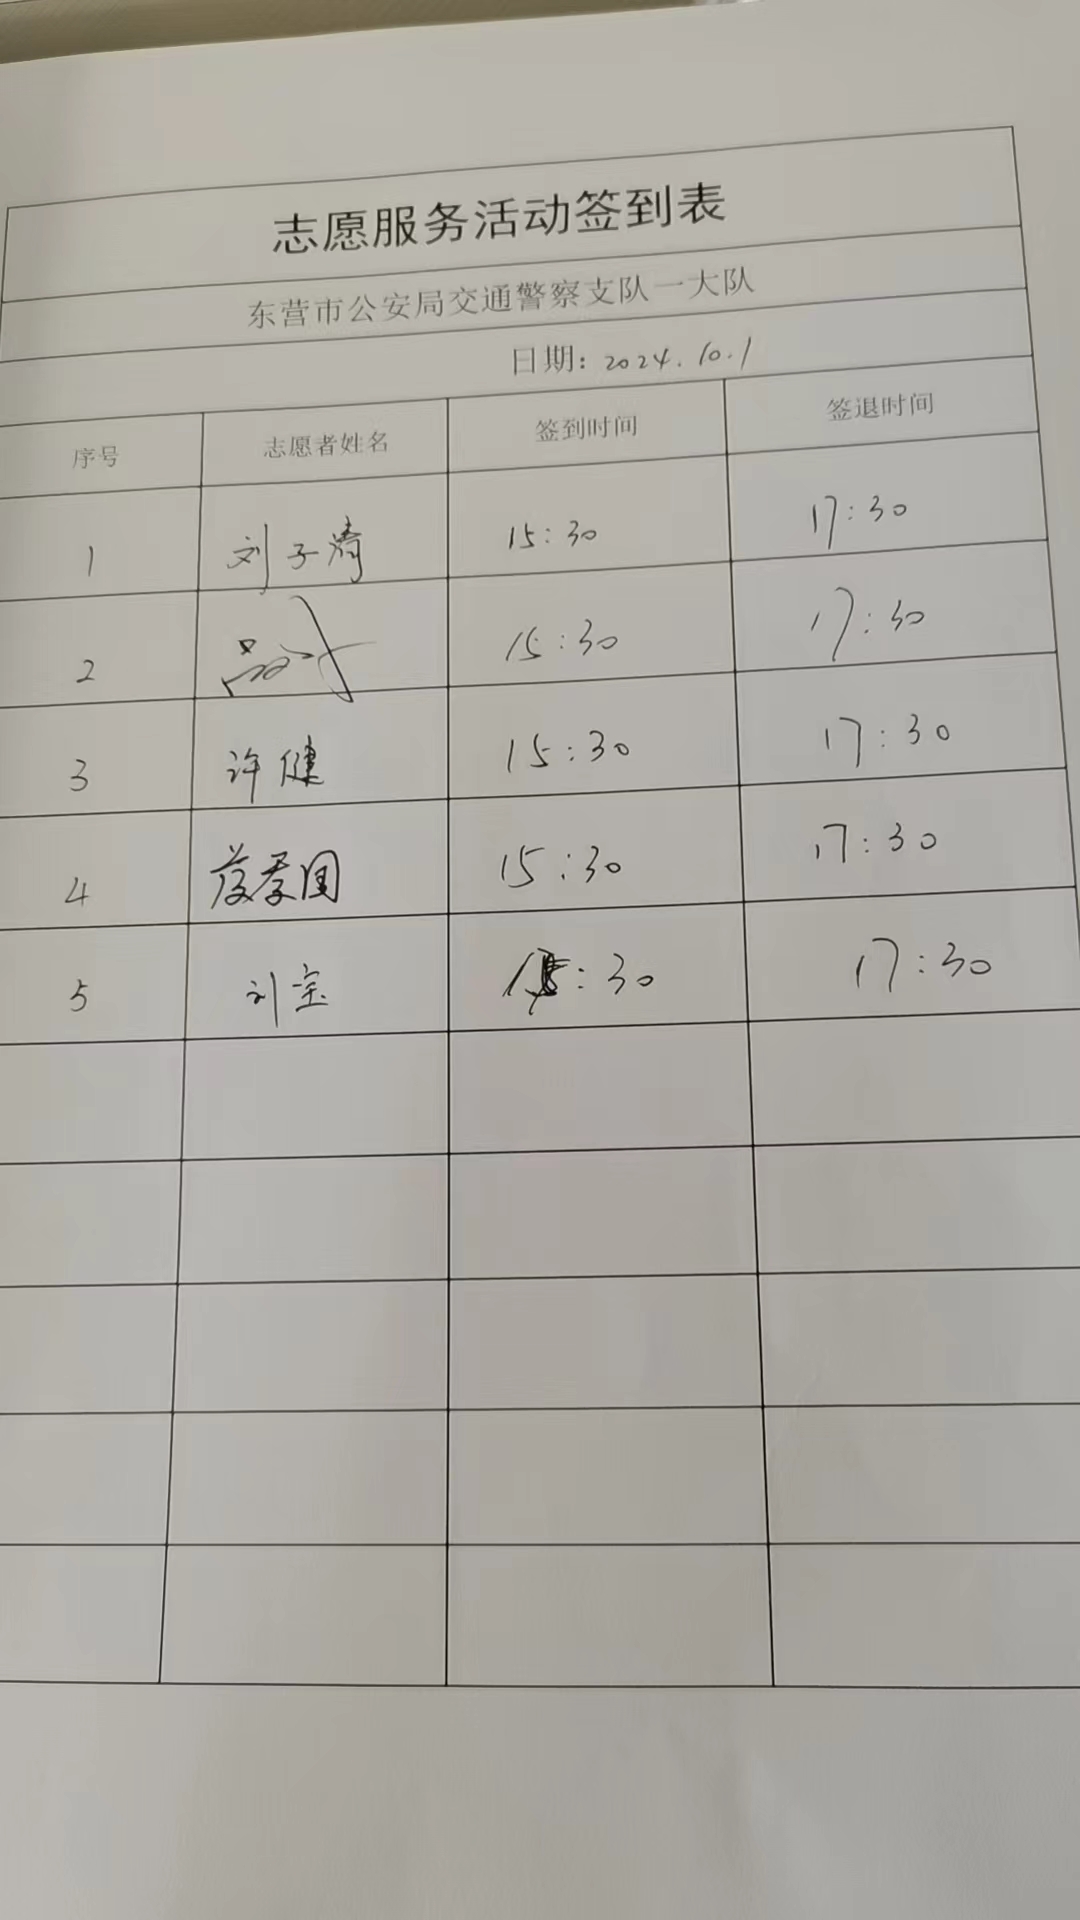 志愿服务活动签到表
东营市公安局交通警察支队一大队
日期: 2024.10.1
序号 志愿者姓名 签到时间 签退时间
1 刘子清 15:30 17:30
2 15:30 17:30
3 许健 15:30 17:30
4 15:30 17:30
5 刘宝 15:30 17:30